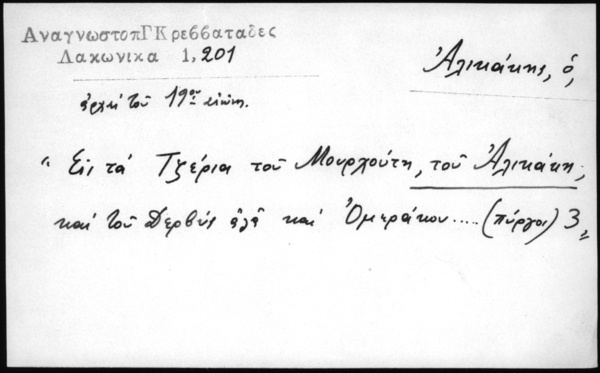 ΑναγνωστοπΓΚρεββαταδες
Λακωνικα 1,201
Ἀλικάκης, ὁ,
ἀρχαί τοῦ 19ου αἰῶνος.
" Εἰς τά Τζέρια τοῦ Μουρχούτη, τοῦ Ἀλικάκη,
καί τοῦ Δερβύς ἀλῆ καί Ὀμεράκου.....(πύργοι) 3 "